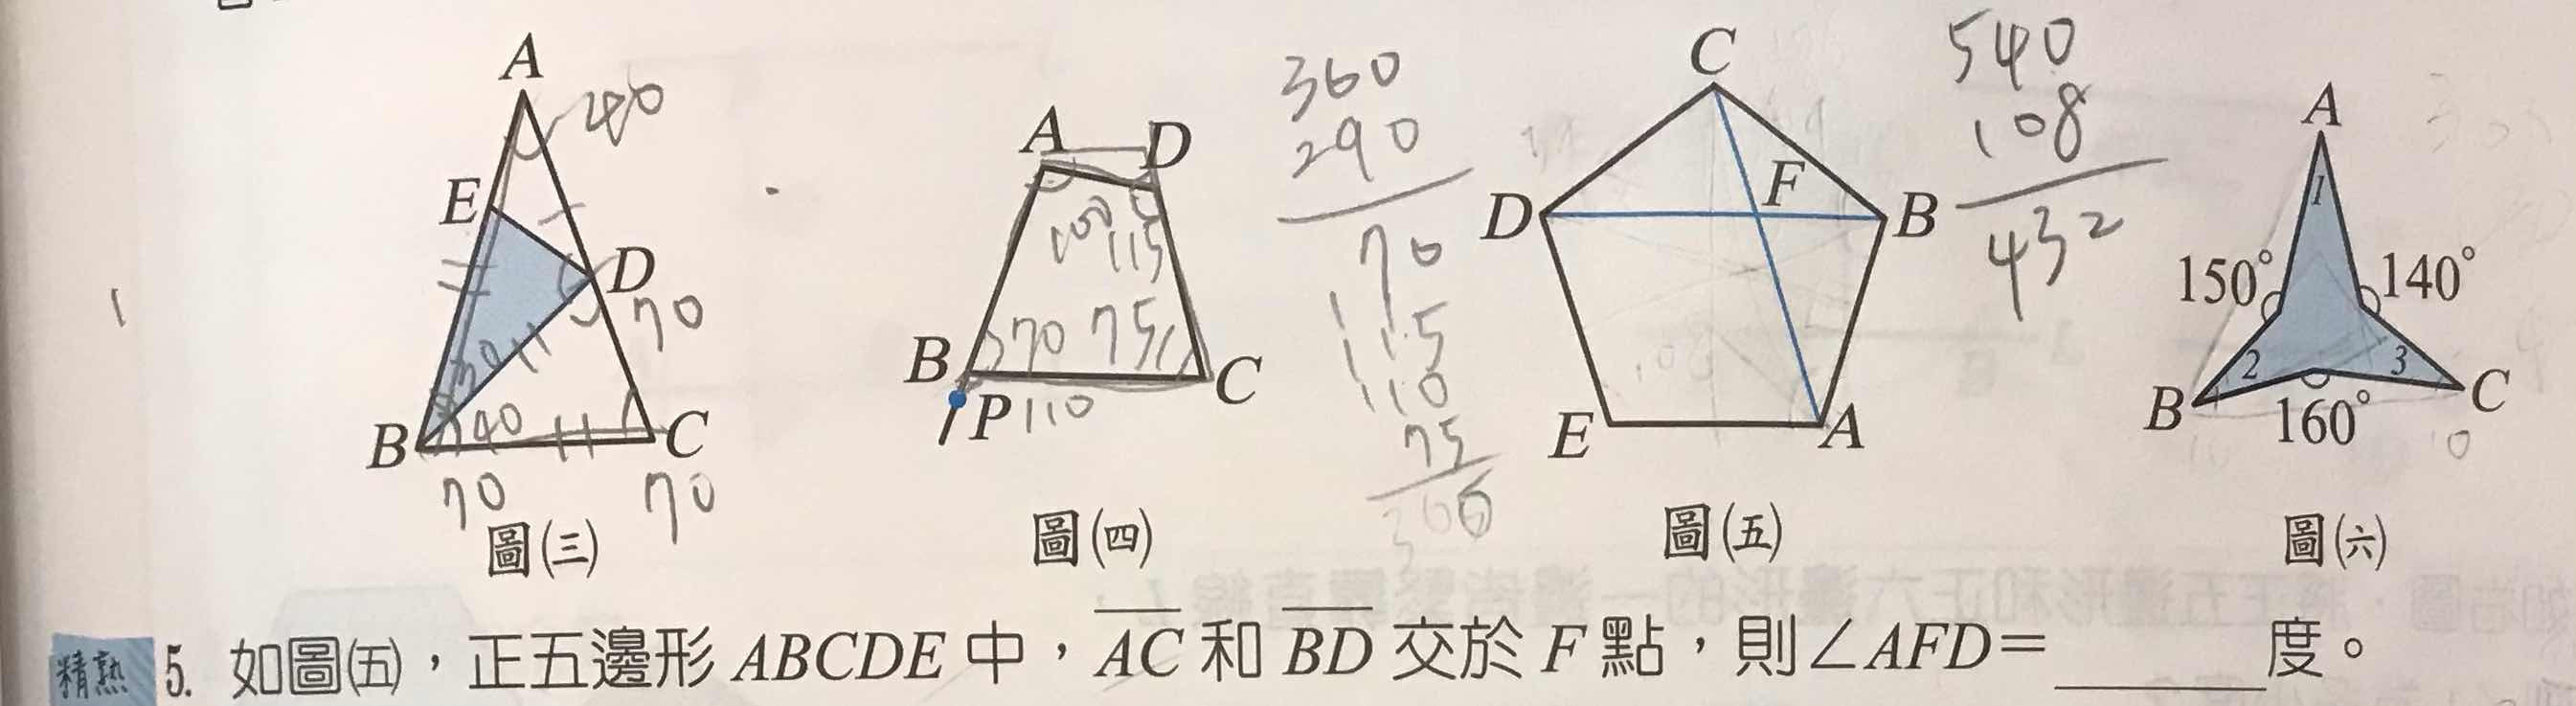 A 40
E
D
70
30
40
B C
70 70
圖(三)
A D
100 115
70 75
B C
P 110
圖(四)
360
290
70
115
110
75
360
C
F
D B
E A
圖(五)
540
108
432
A
1
150° 140°
2 3
B C
160°
圖(六)
精熟 5. 如圖(五)，正五邊形 ABCDE 中，AC 和 BD 交於 F 點，則∠AFD=______度。